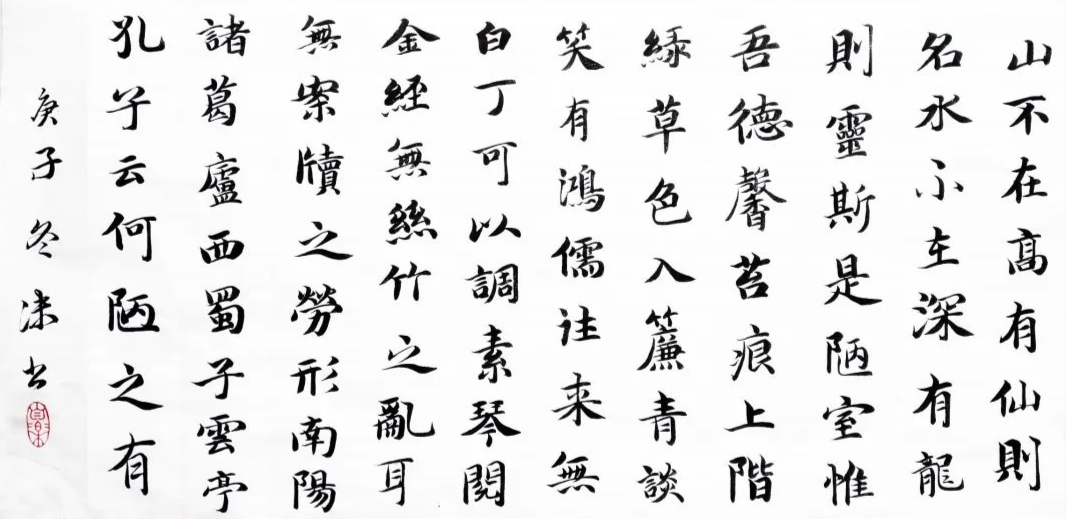 山不在高有仙則
名水不在深有龍
則靈斯是陋室惟
吾德馨苔痕上階
綠草色入簾青談
笑有鴻儒往来無
白丁可以調素琴閱
金經無絲竹之亂耳
無案牘之勞形南陽
諸葛廬西蜀子雲亭
孔子云何陋之有
庚子冬书